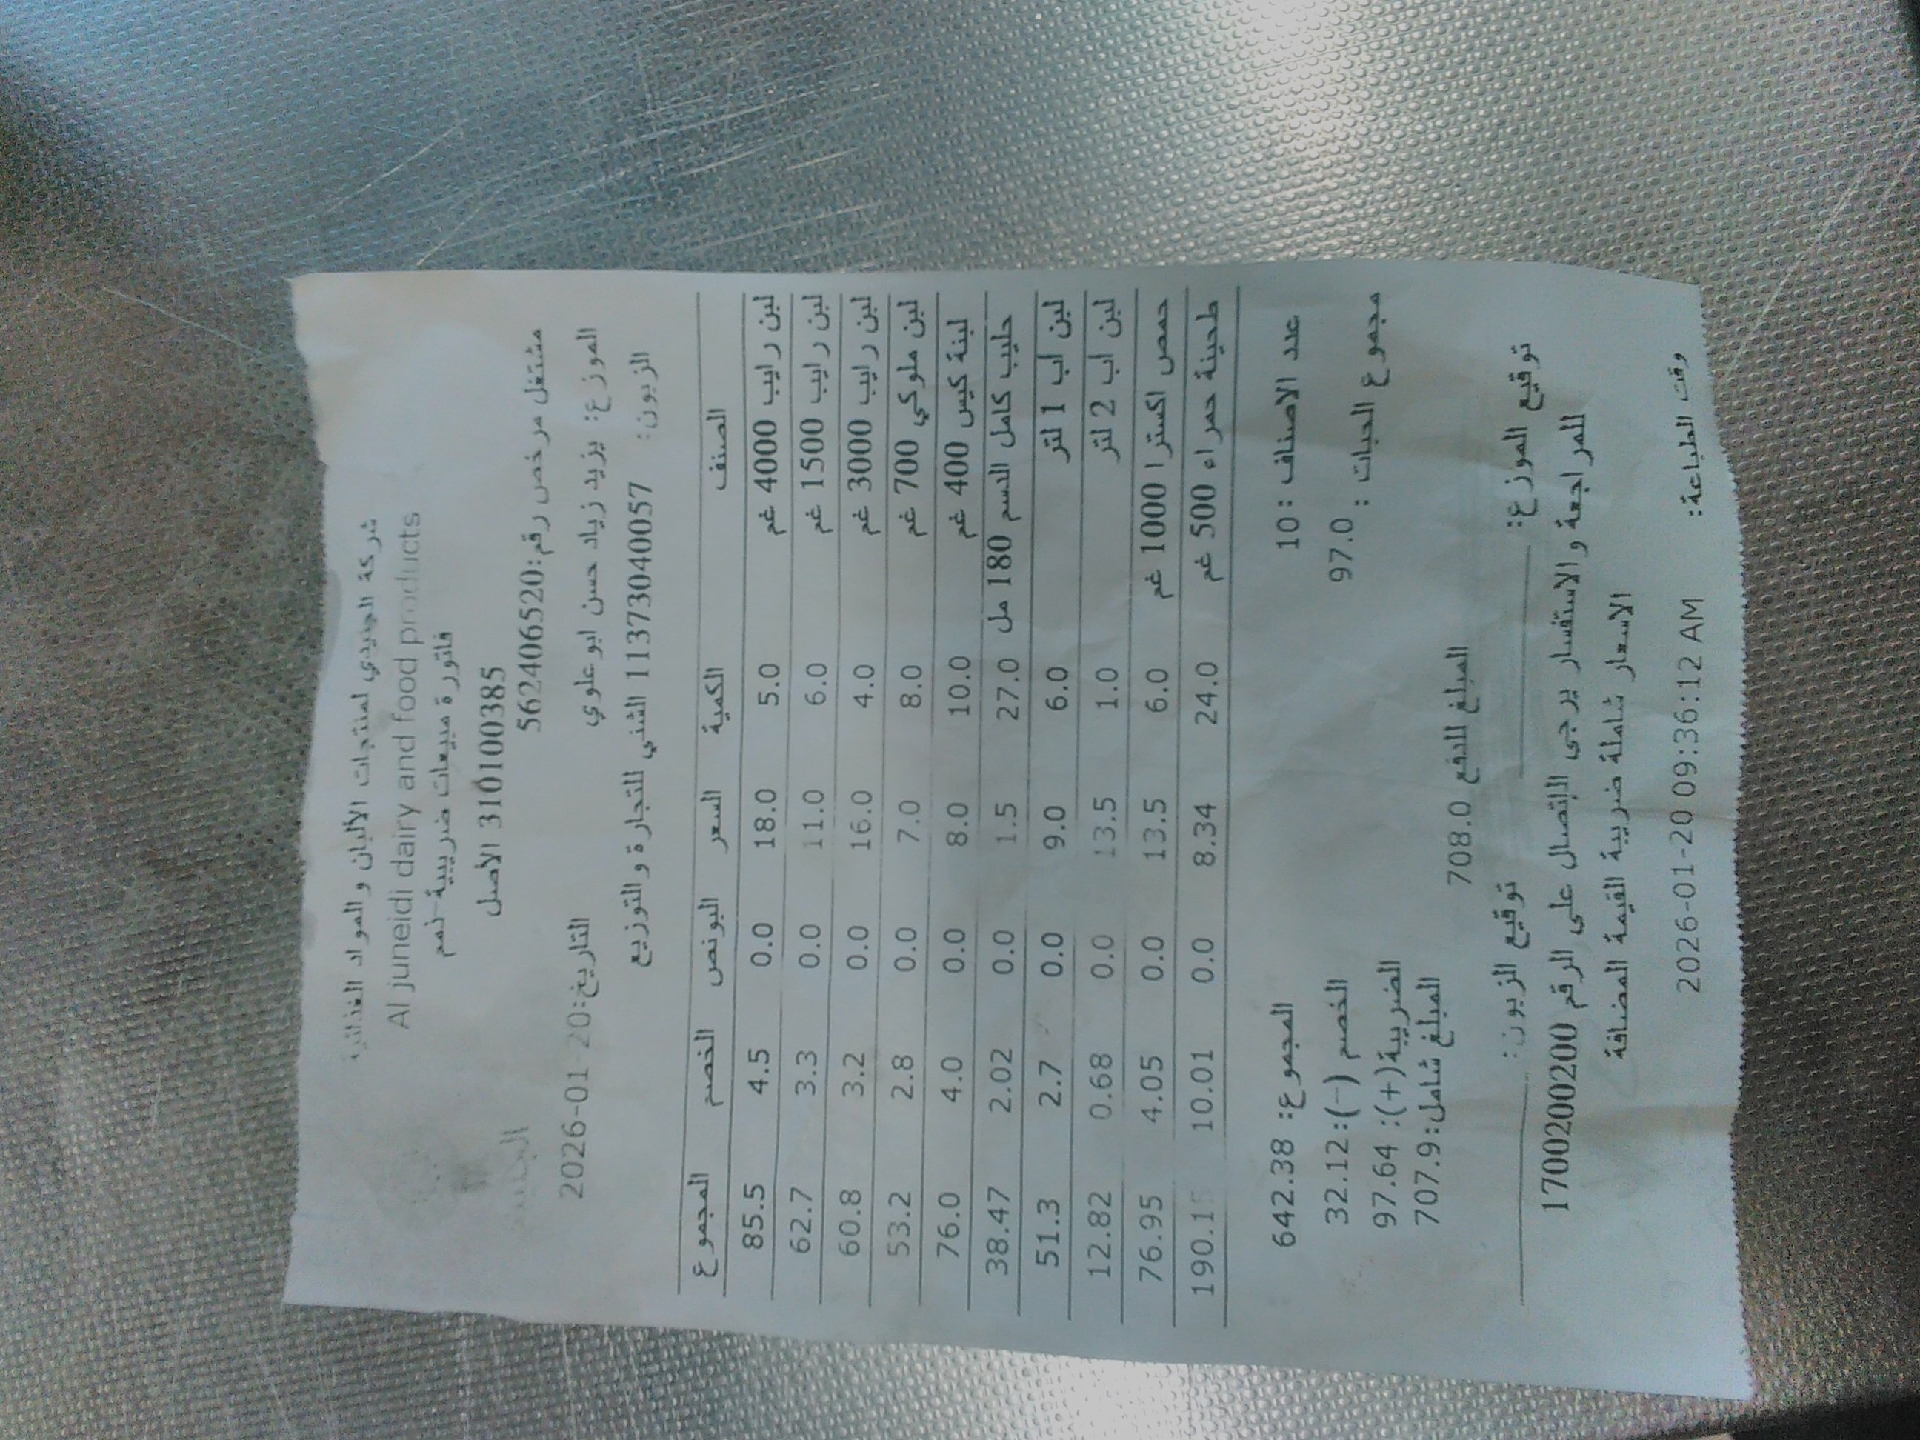 شركة الجنيدي لمنتجات الألبان والمواد الغذائية
Al juneidi dairy and food products
فاتورة مبيعات ضريبية-نمم
310100385 الأصل
مشتغل مرخص رقم:562406520
الموزع: يزيد زياد حسن ابو علوي التاريخ:2026-01-20
الزبون: 1137304057 الشني للتجارة والتوزيع
الصنف الكمية السعر البونص الخصم المجموع
لبن رايب 4000 غم 5.0 18.0 0.0 4.5 85.5
لبن رايب 1500 غم 6.0 11.0 0.0 3.3 62.7
لبن رايب 3000 غم 4.0 16.0 0.0 3.2 60.8
لبن ملوكي 700 غم 8.0 7.0 0.0 2.8 53.2
لبنة كيس 400 غم 10.0 8.0 0.0 4.0 76.0
حليب كامل الدسم 180 مل 27.0 1.5 0.0 2.02 38.47
لبن اب 1 لتر 6.0 9.0 0.0 2.7 51.3
لبن اب 2 لتر 1.0 13.5 0.0 0.68 12.82
حمص اكسترا 1000 غم 6.0 13.5 0.0 4.05 76.95
طحينة حمراء 500 غم 24.0 8.34 0.0 10.01 190.15
عدد الاصناف : 10 المجموع: 642.38
مجموع الحبات : 97.0 الخصم (-):32.12
الضريبة(+): 97.64
المبلغ شامل:707.9
المبلغ للدفع 708.0
توقيع الموزع: توقيع الزبون:
للمراجعة والاستفسار يرجى الإتصال على الرقم 1700200200
الاسعار شاملة ضريبة القيمة المضافة
وقت الطباعة: 2026-01-20 09:36:12 AM